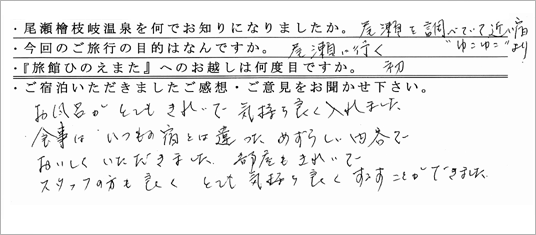 ・尾瀬檜枝岐温泉を何でお知りになりましたか。尾瀬を調べていて近い宿
"ゆこゆこ"より
・今回のご旅行の目的はなんですか。 尾瀬に行く
・『旅館ひのえまた』へのお越しは何度目ですか。 初
・ご宿泊いただきましたご感想・ご意見をお聞かせ下さい。
お風呂がとてもきれいで気持ち良く入れました
食事はいつもの宿とは違っためずらしい内容で
おいしくいただきました。部屋もきれいで
スタッフの方も良くとても気持ち良くすごすことができました。